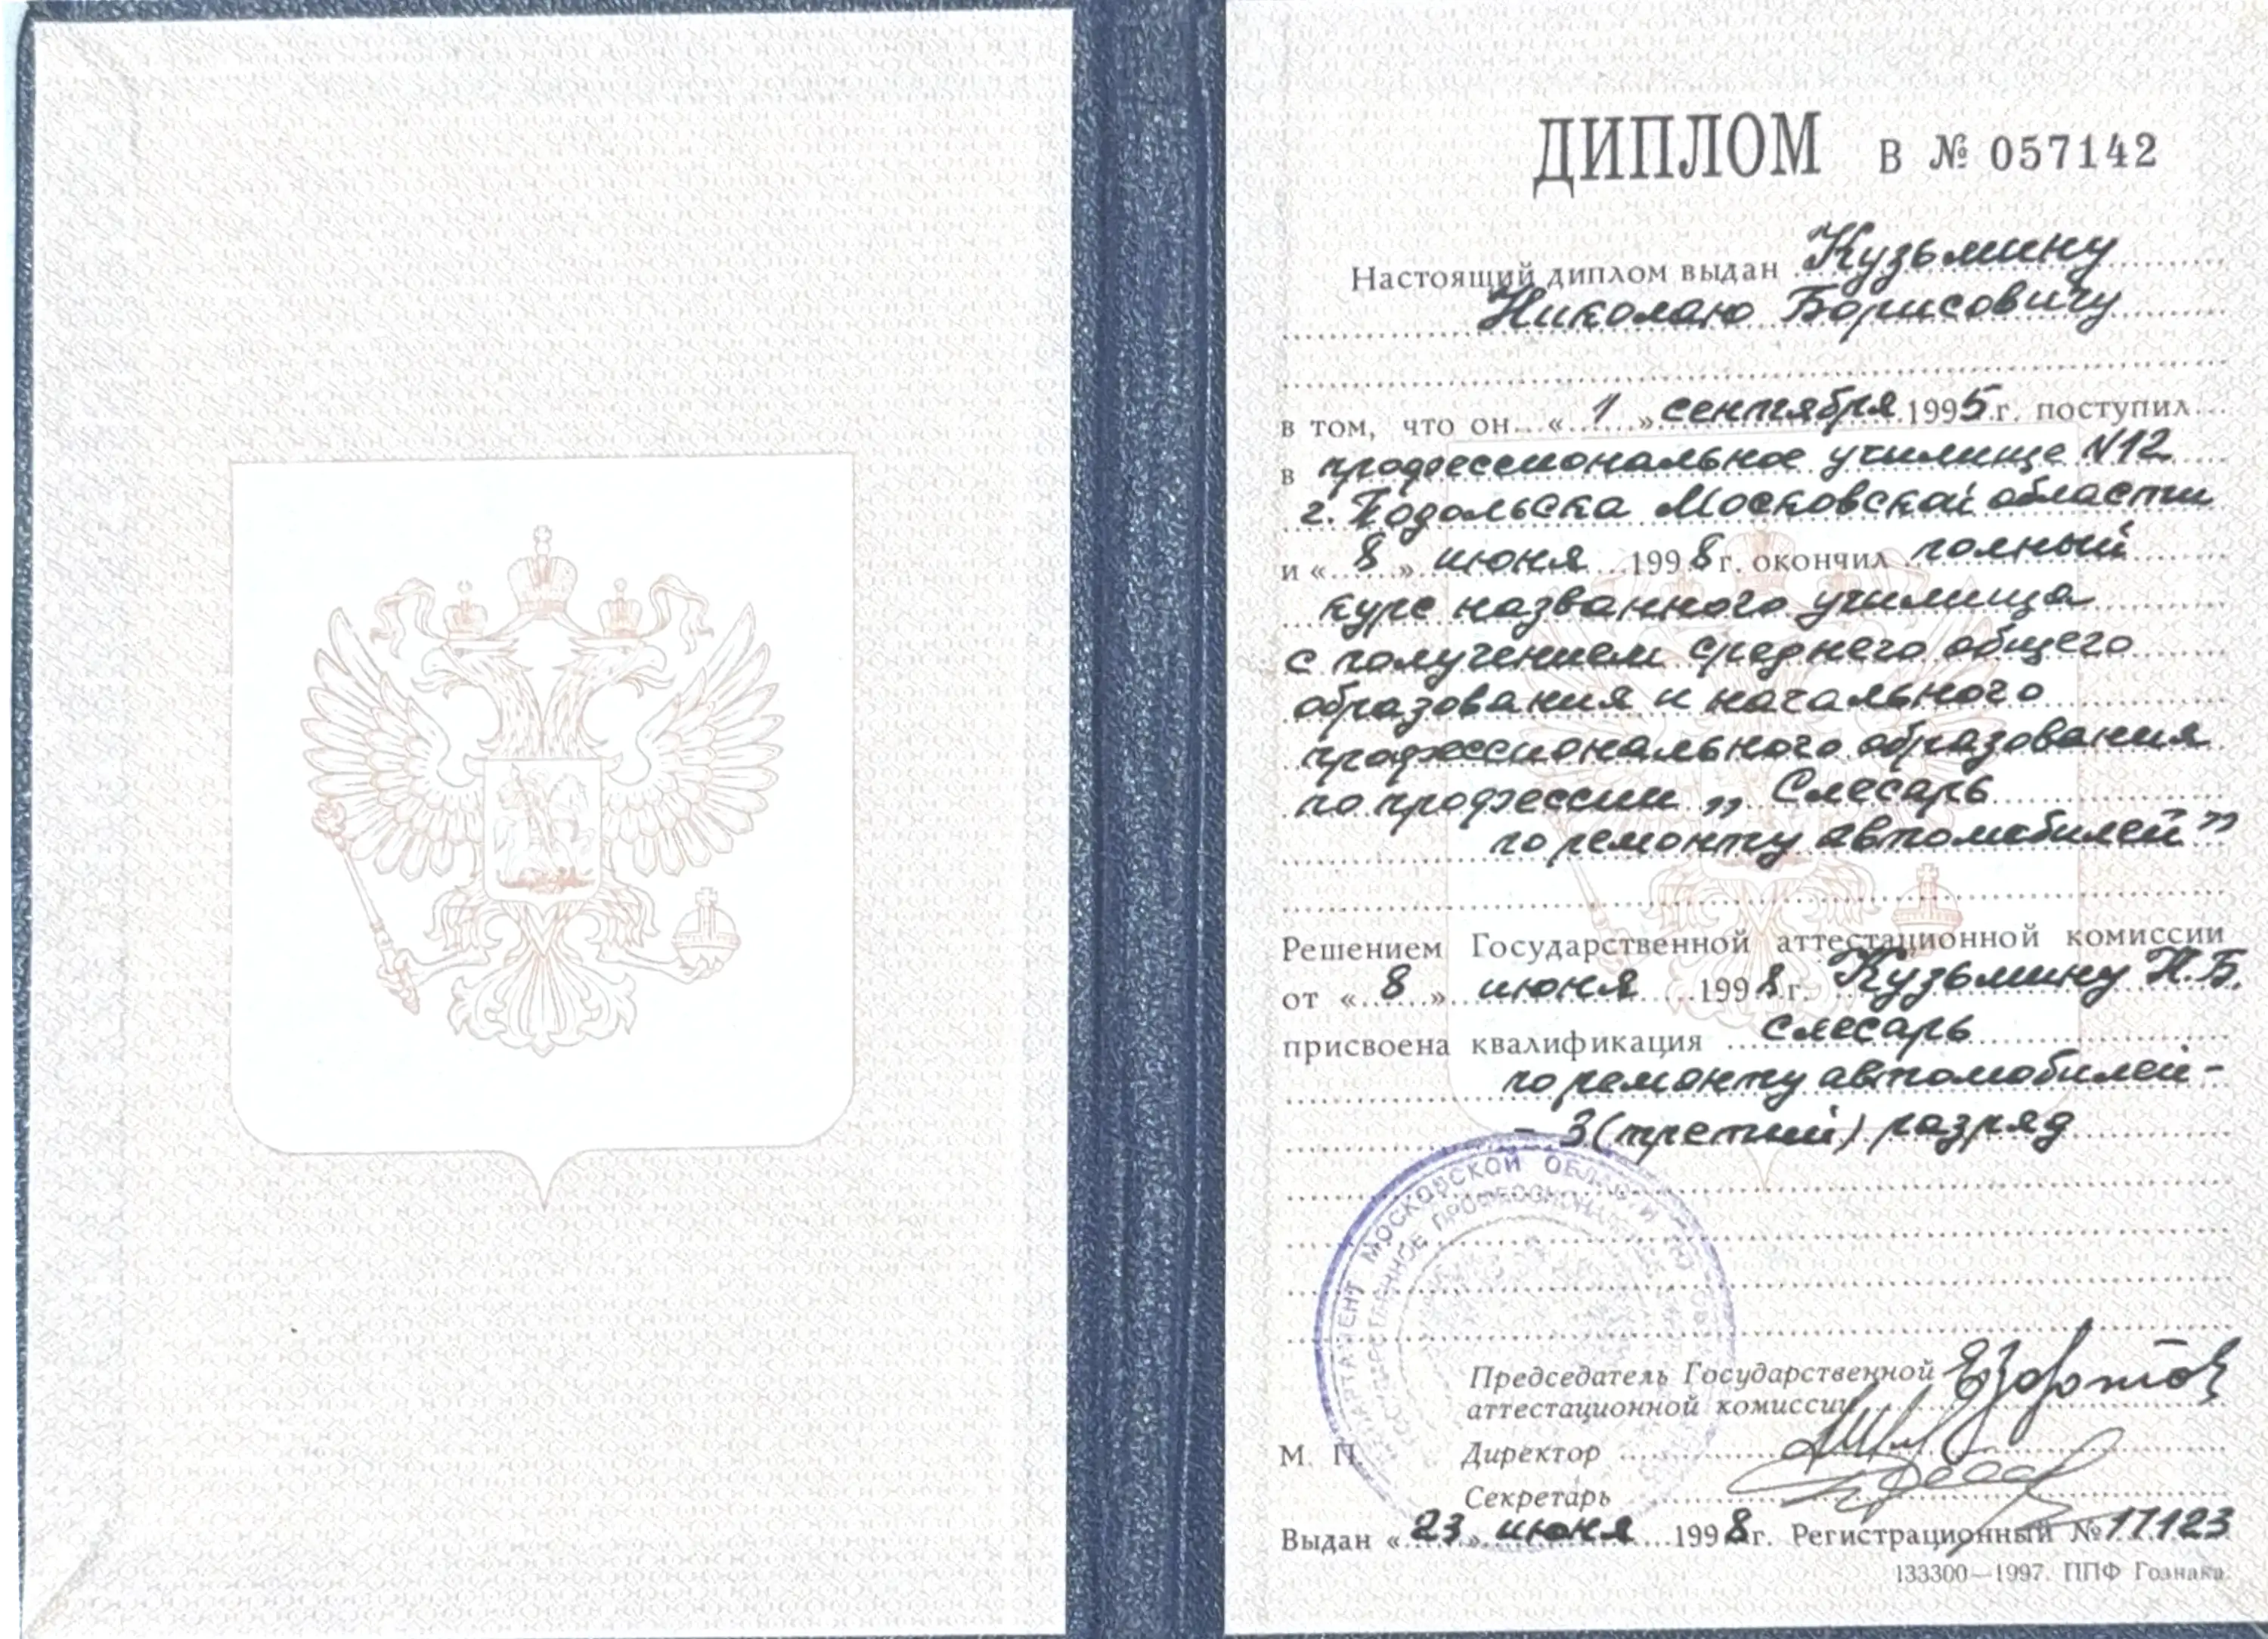 ДИПЛОМ В № 057142
Настоящий диплом выдан Кузьмину
Николаю Борисовичу
в том, что он «1» сентября 1995 г. поступил
в профессиональное училище N12
г. Подольска Московской области
и «8» июня 1998 г. окончил полный
курс названного училища
с получением среднего общего
образования и начального
профессионального образования
по профессии „Слесарь
по ремонту автомобилей”
Решением Государственной аттестационной комиссии
от «8» июня 1998 г. Кузьмину Н.Б.
присвоена квалификация слесарь
по ремонту автомобилей -
- 3 (третий) разряд
ДЕПАРТАМЕНТ МОСКОВСКОЙ ОБЛАСТИ ПО
ГОСУДАРСТВЕННОЕ
Председатель Государственной
аттестационной комиссии
М. П. Директор
Секретарь
Выдан «23» июня 1998 г. Регистрационный № 17123
133300—1997. ППФ Гознака.